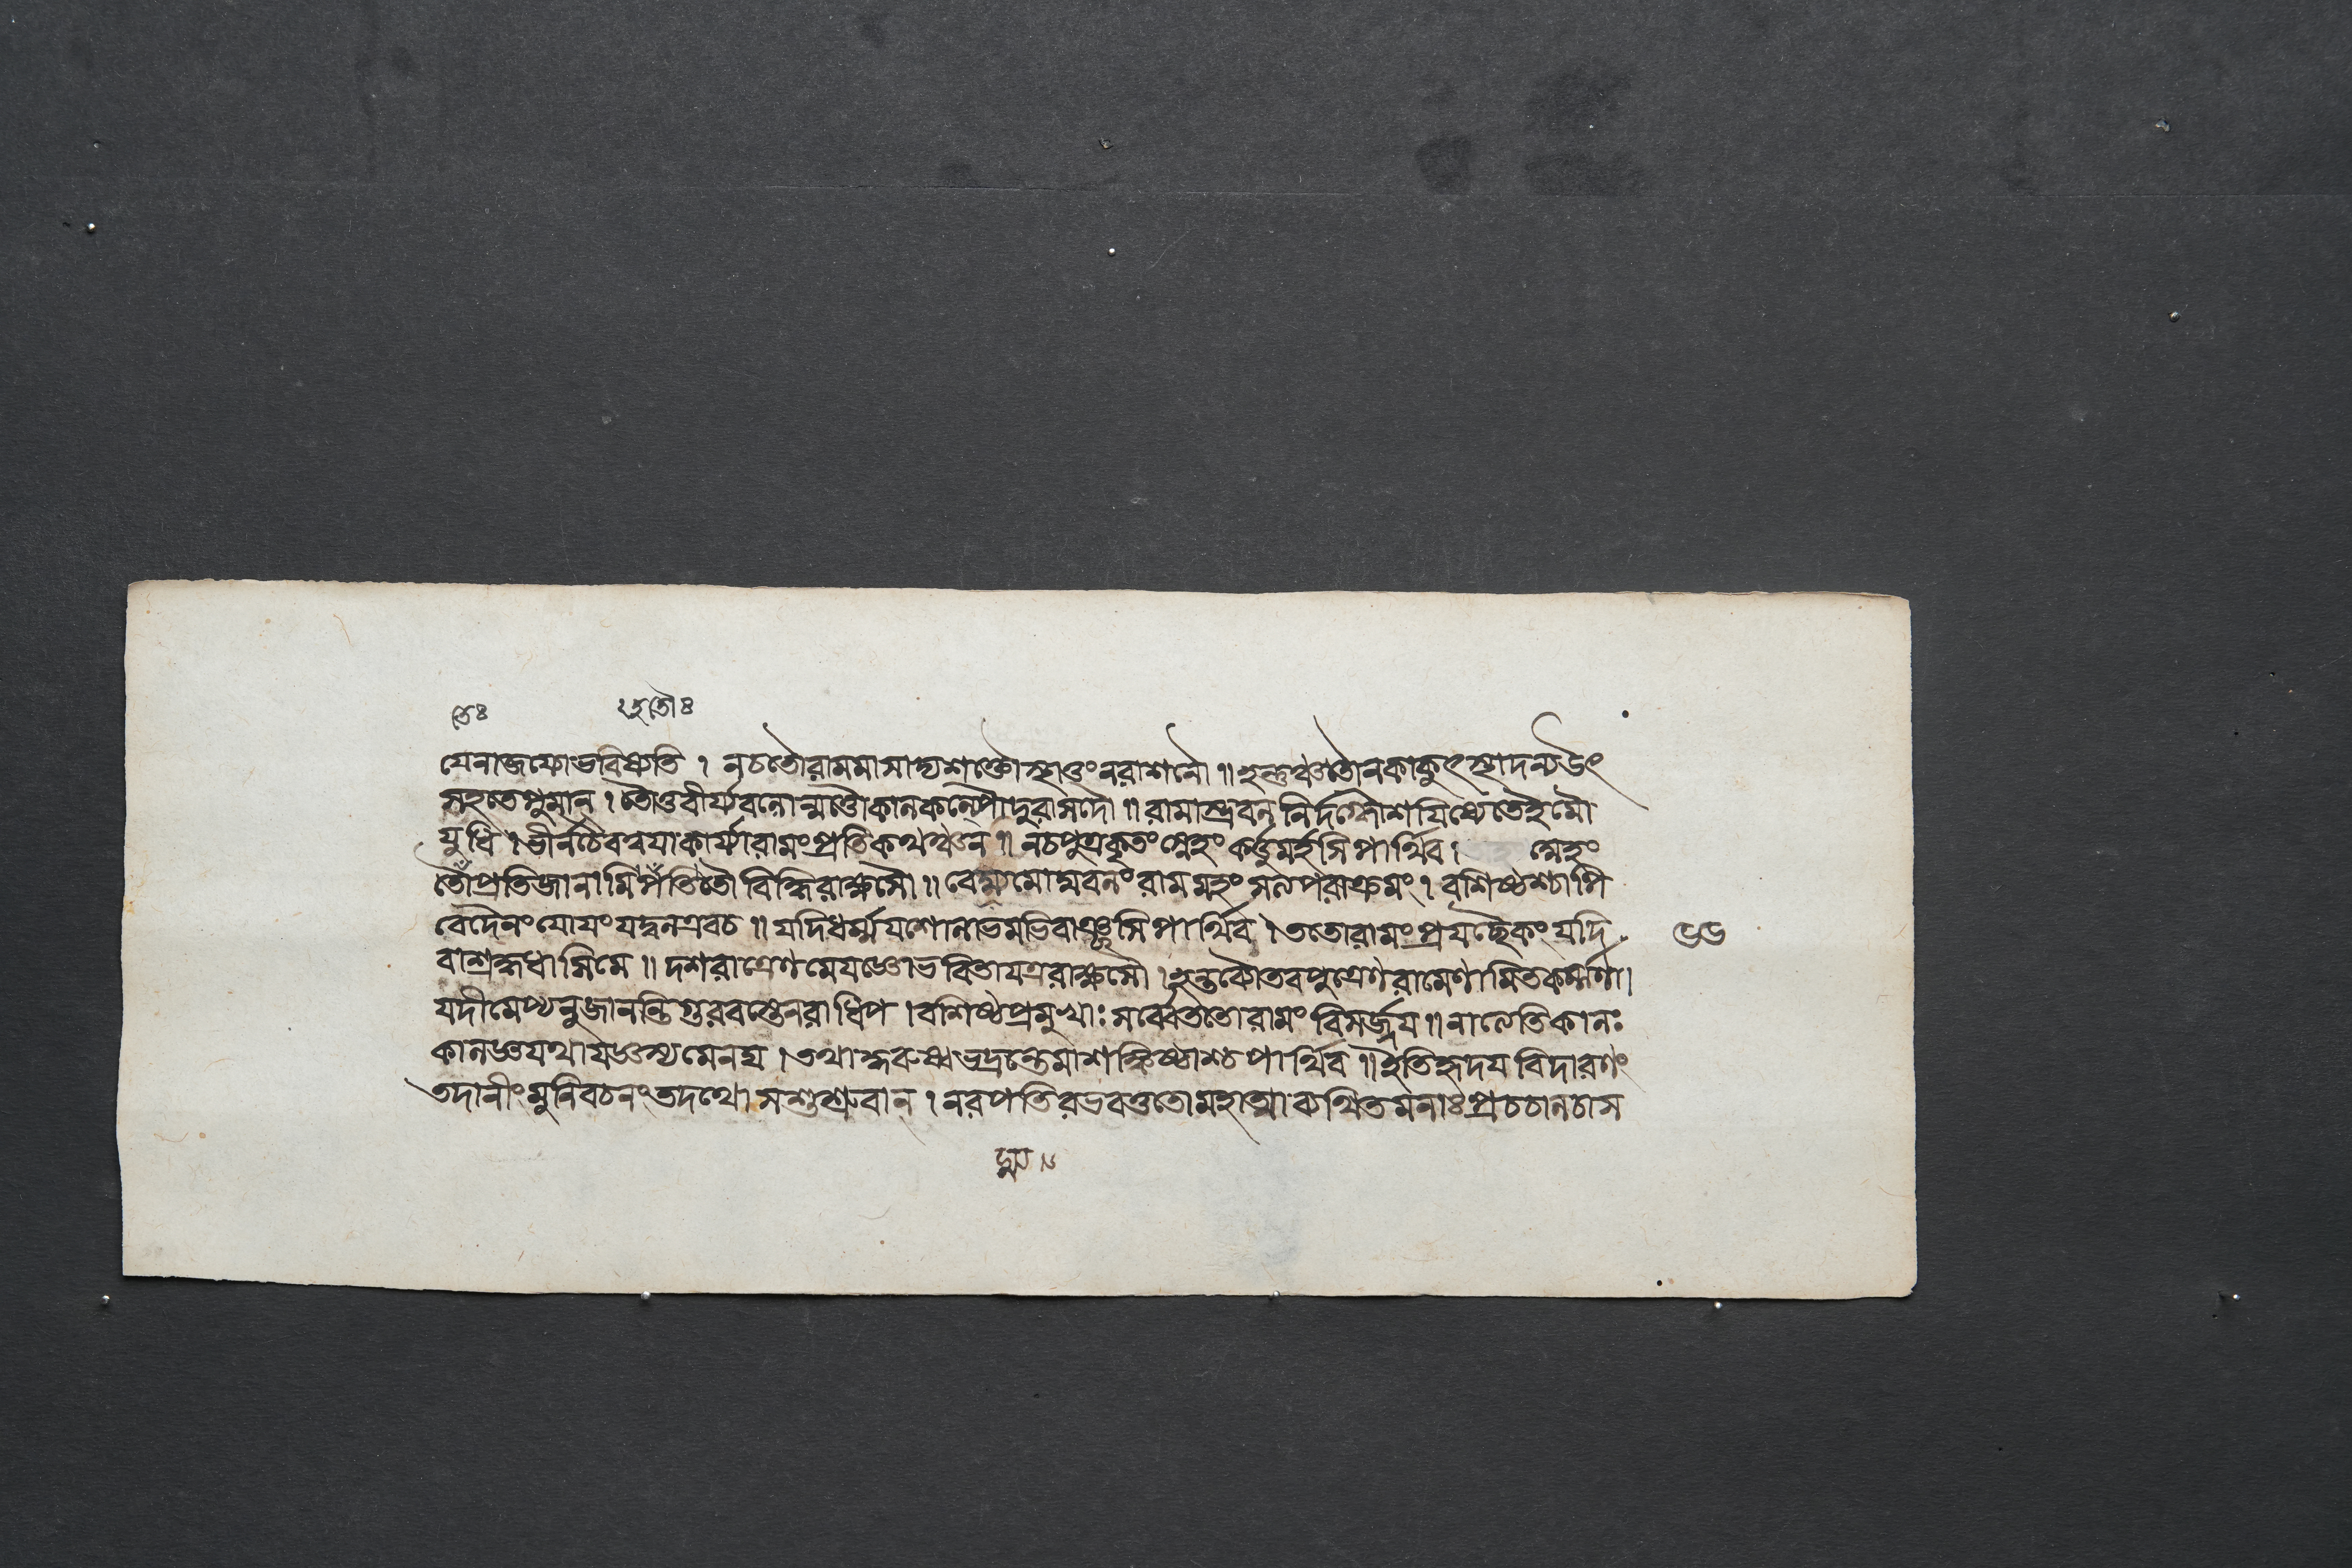 তৌঃ ২হ্রতৌঃ
যেনাজয্যোভবিষ্যতি । নচতৌরামমাসাদ্যশক্তৌস্থাতুংনরাশনৌ ॥ হন্তুঞ্চতৌনকাকুৎস্থাদন্যউৎ
সহতেপুমান্ । তৌতুবীর্য্যবলোন্মত্তৌকালকল্পৌদুরাসদৌ ॥ রামাস্ত্রবলনির্দগ্ধৌশয়িষ্যেতেইমৌ
যুধি । ভীর্নচৈবত্বয়াকার্য্যারামংপ্রতিকথঞ্চন ॥ নচপুত্রকৃতংস্নেহংকর্ত্তুমর্হসিপার্থিব । স্নেহং
তৌঁপ্রতিজানামিহতৌতৌবিদ্ধিরাক্ষসৌ ॥ বেদ্ম্যমোঘবলংরামমহংসত্যপরাক্রমং । বশিষ্ঠশ্চাপি
বেদৈনংযোয়ংযদ্বলএবচ ॥ যদিধর্ম্মযশোলাভমভিবাঞ্ছসিপার্থিব । ততোরামংপ্রযচ্ছৈকংযদি
বাশ্রদ্দধাসিমে ॥ দশরাত্রেণমেযজ্ঞোভবিতাযত্ররাক্ষসৌ । হন্তব্যৌতবপুত্রেণরামেণামিতকর্ম্মণা ।
যদীমেপ্যনুজানন্তিগুরবস্তেনরাধিপ । বশিষ্ঠপ্রমুখাঃসর্ব্বেততোরামংবিসর্জ্জয় ॥ নাত্যেতিকালঃ
কালজ্ঞযথাযজ্ঞস্যমেনঘ । তথাত্বকুরুষ্বভদ্রন্তেমাশঙ্কিষ্ঠাশ্চপার্থিব ॥ ইতিহৃদয়বিদারণং
তদানীংমুনিবচনংতদথোসশুশ্রুবান্ । নরপতিরভবত্ততোমহাত্মাব্যথিতমনাঃপ্রচচালচাস
৬৬